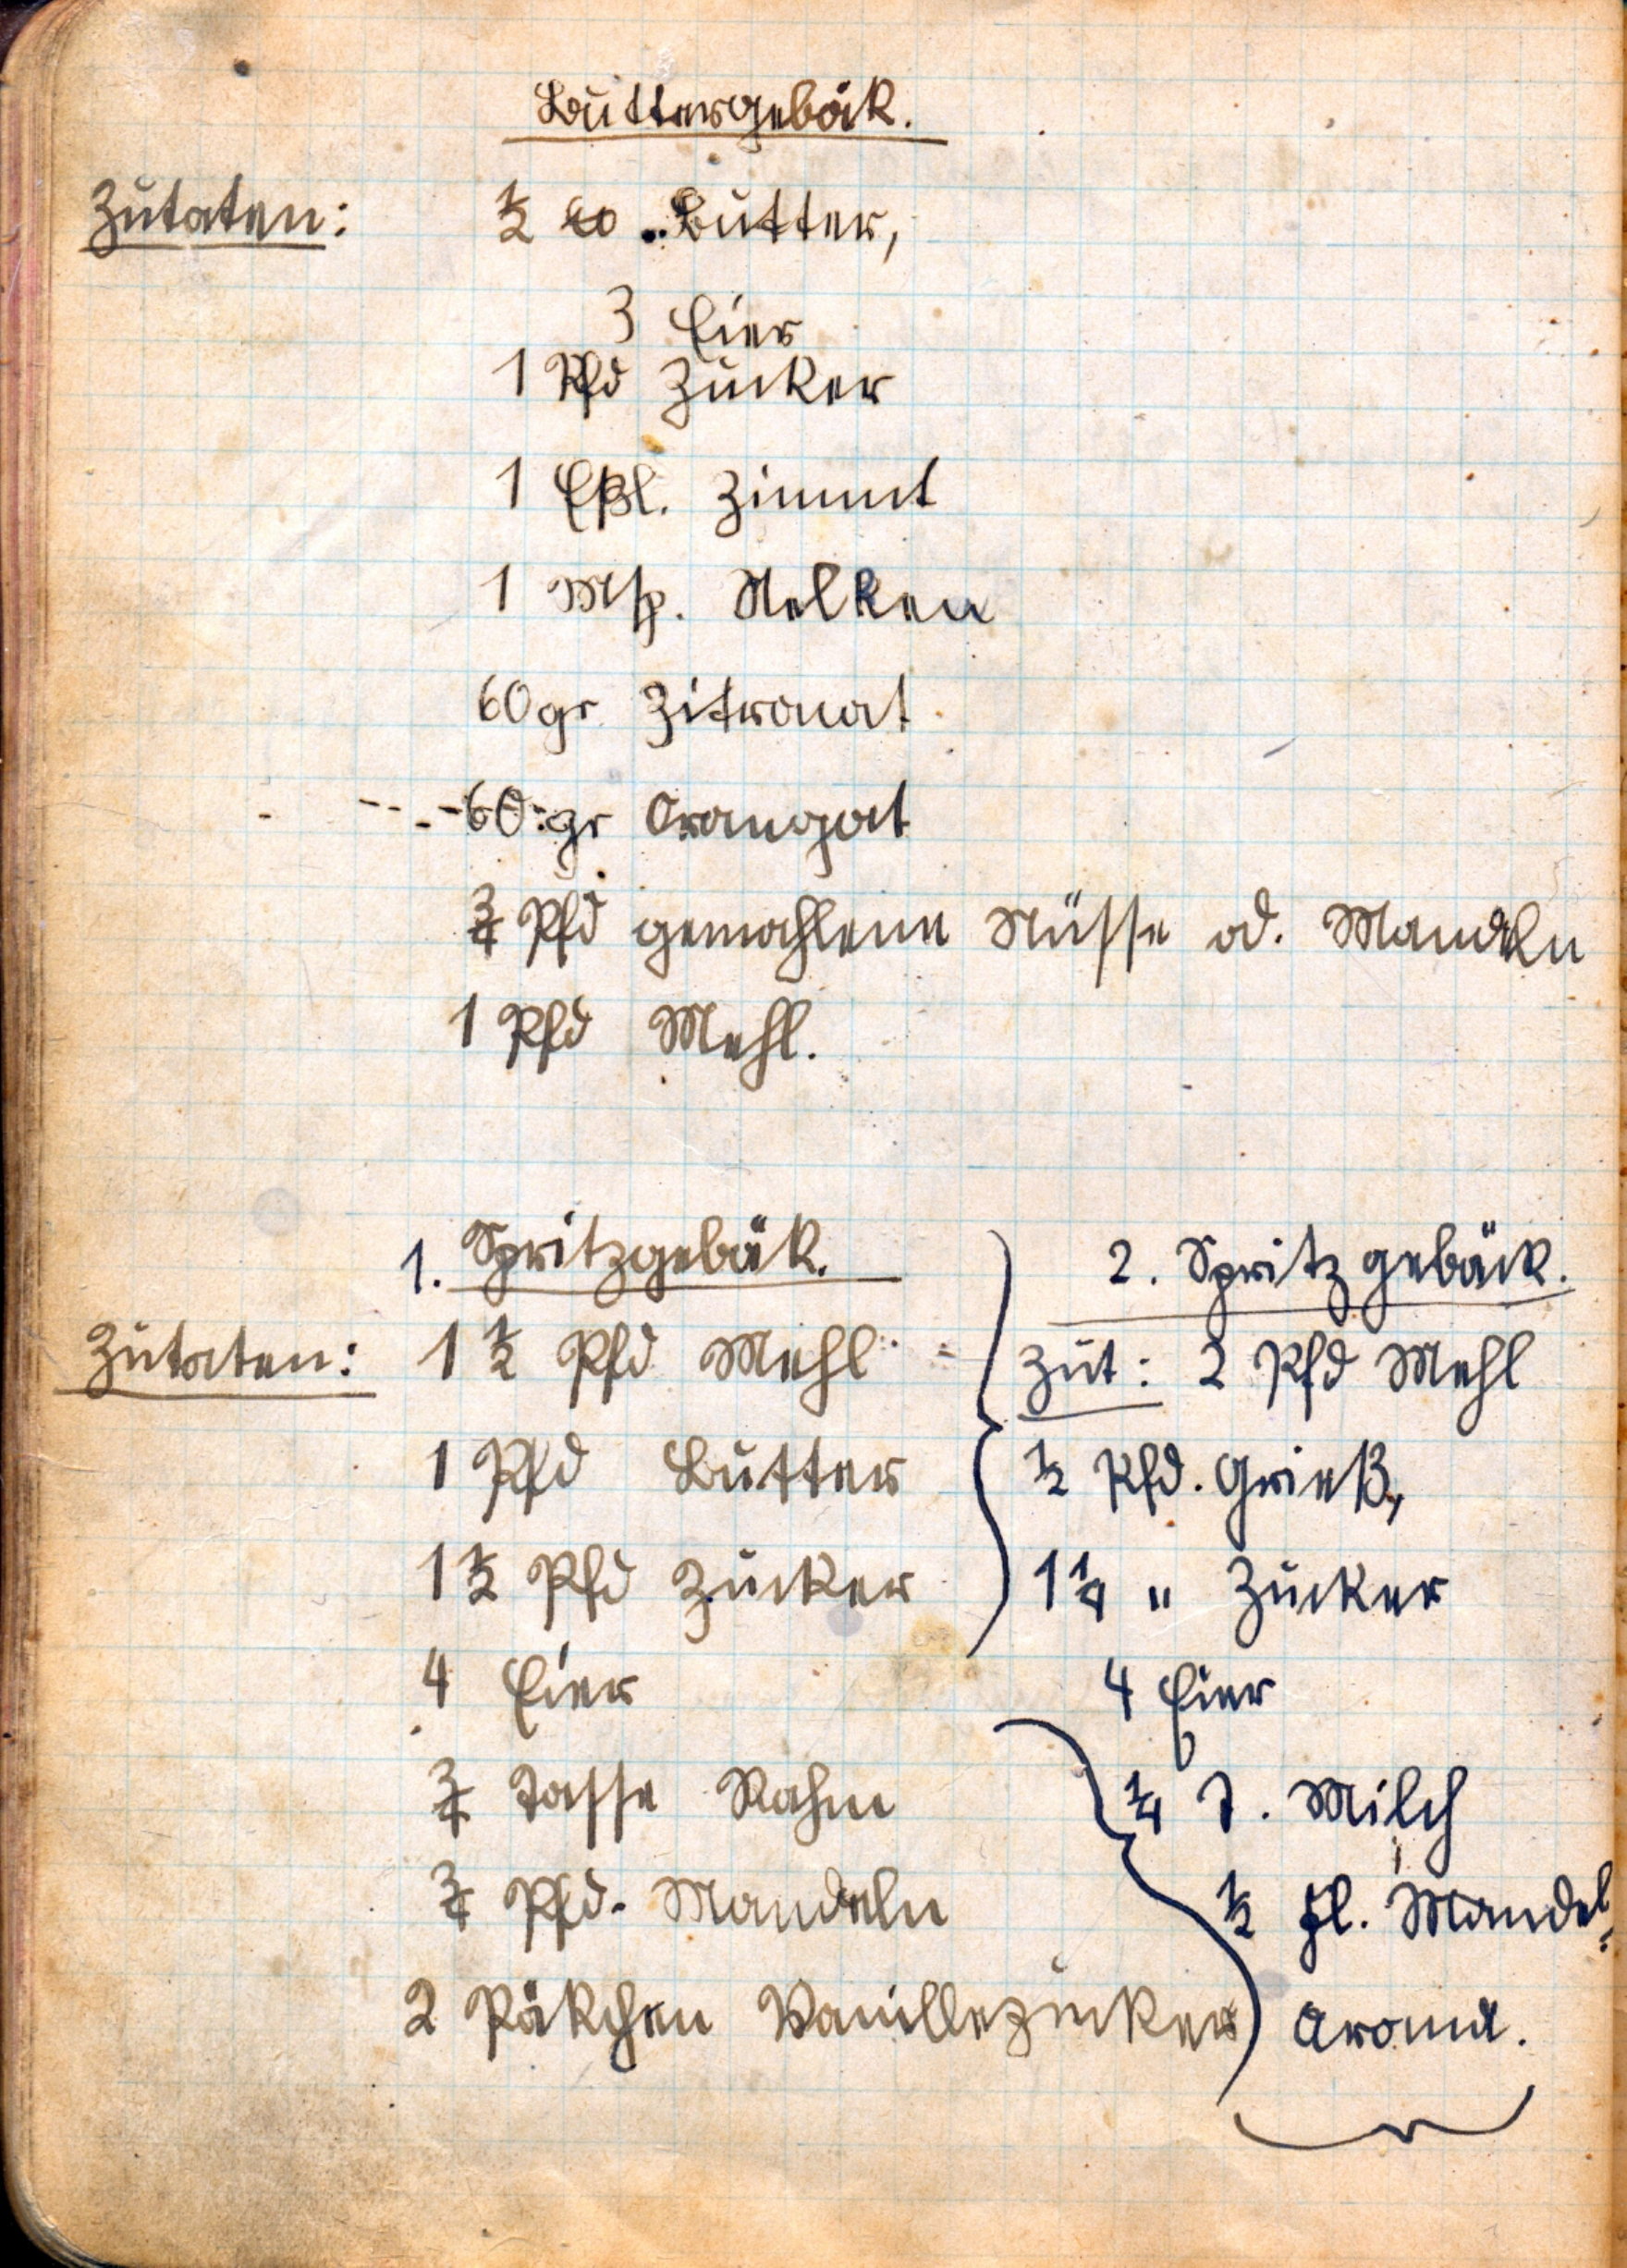 Buttergebäk.
Zutaten:
½ ℔ Butter,
3 Eier
1 Pfd Zucker
1 Eßl. Zimmt
1 Msp. Nelken
60 gr Zitronat
60 gr Orangat
¾ Pfd gemahlene Nüsse od. Mandeln
1 Pfd Mehl.
1. Spritzgebäk.
Zutaten: 1 ½ Pfd Mehl
1 Pfd Butter
1 ½ Pfd Zucker
4 Eier
¾ Tasse Rahm
¾ Pfd. Mandeln
2 Päkchen Vanillezucker
2. Spritzgebäck.
Zut: 2 Pfd Mehl
½ Pfd. Grieß,
1 ¼ " Zucker
4 Eier
¼ l. Milch
½ Fl. Mandel-
aroma.